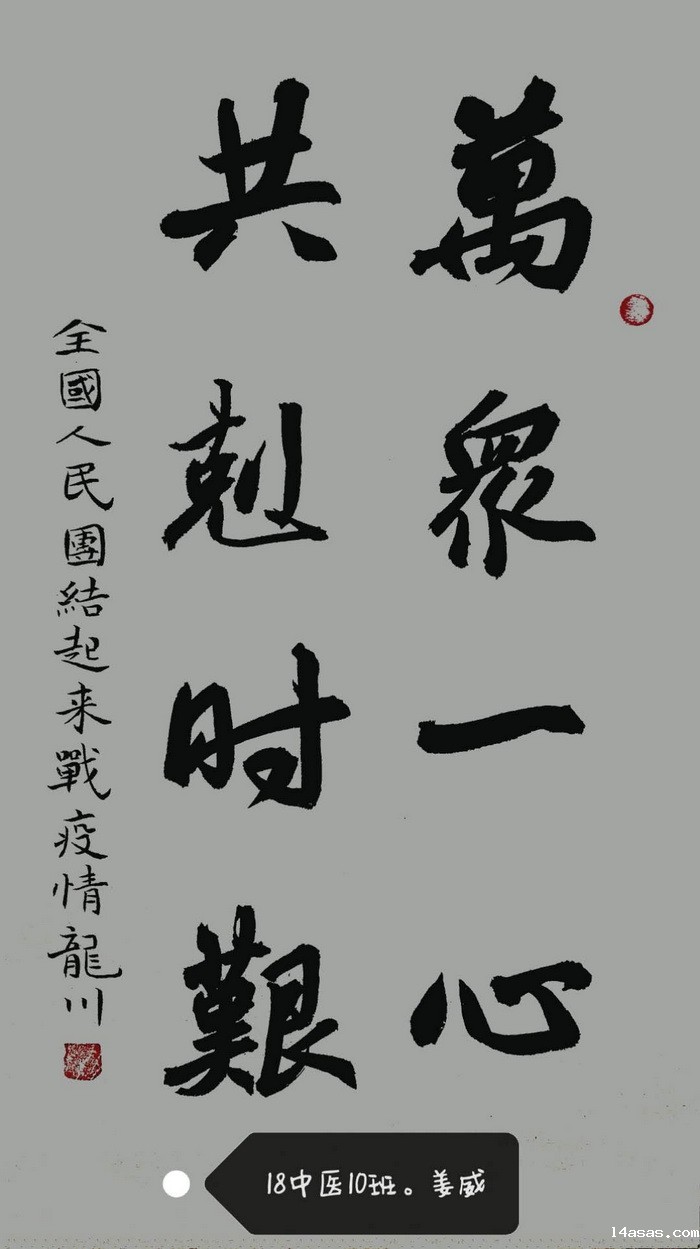 萬衆一心
共剋时艱
全國人民團結起来戰疫情龍川
18中医10班。姜威
14asas.com